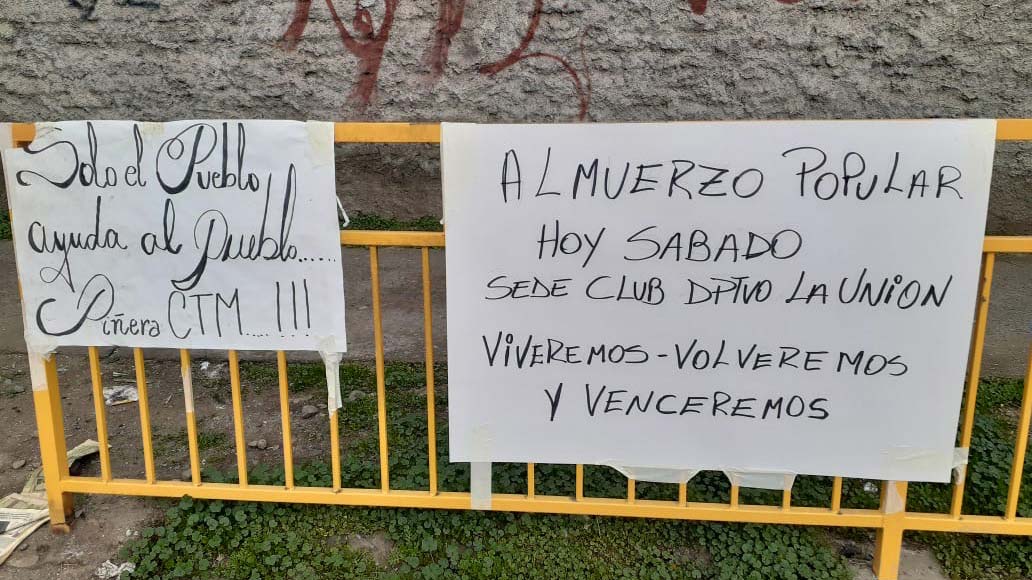 Solo el Pueblo
ayuda al pueblo......
Piñera CTM....!!!
ALMUERZO POPULAR
HOY SABADO
SEDE CLUB DPTVO LA UNION
VIVEREMOS-VOLVEREMOS
Y VENCEREMOS